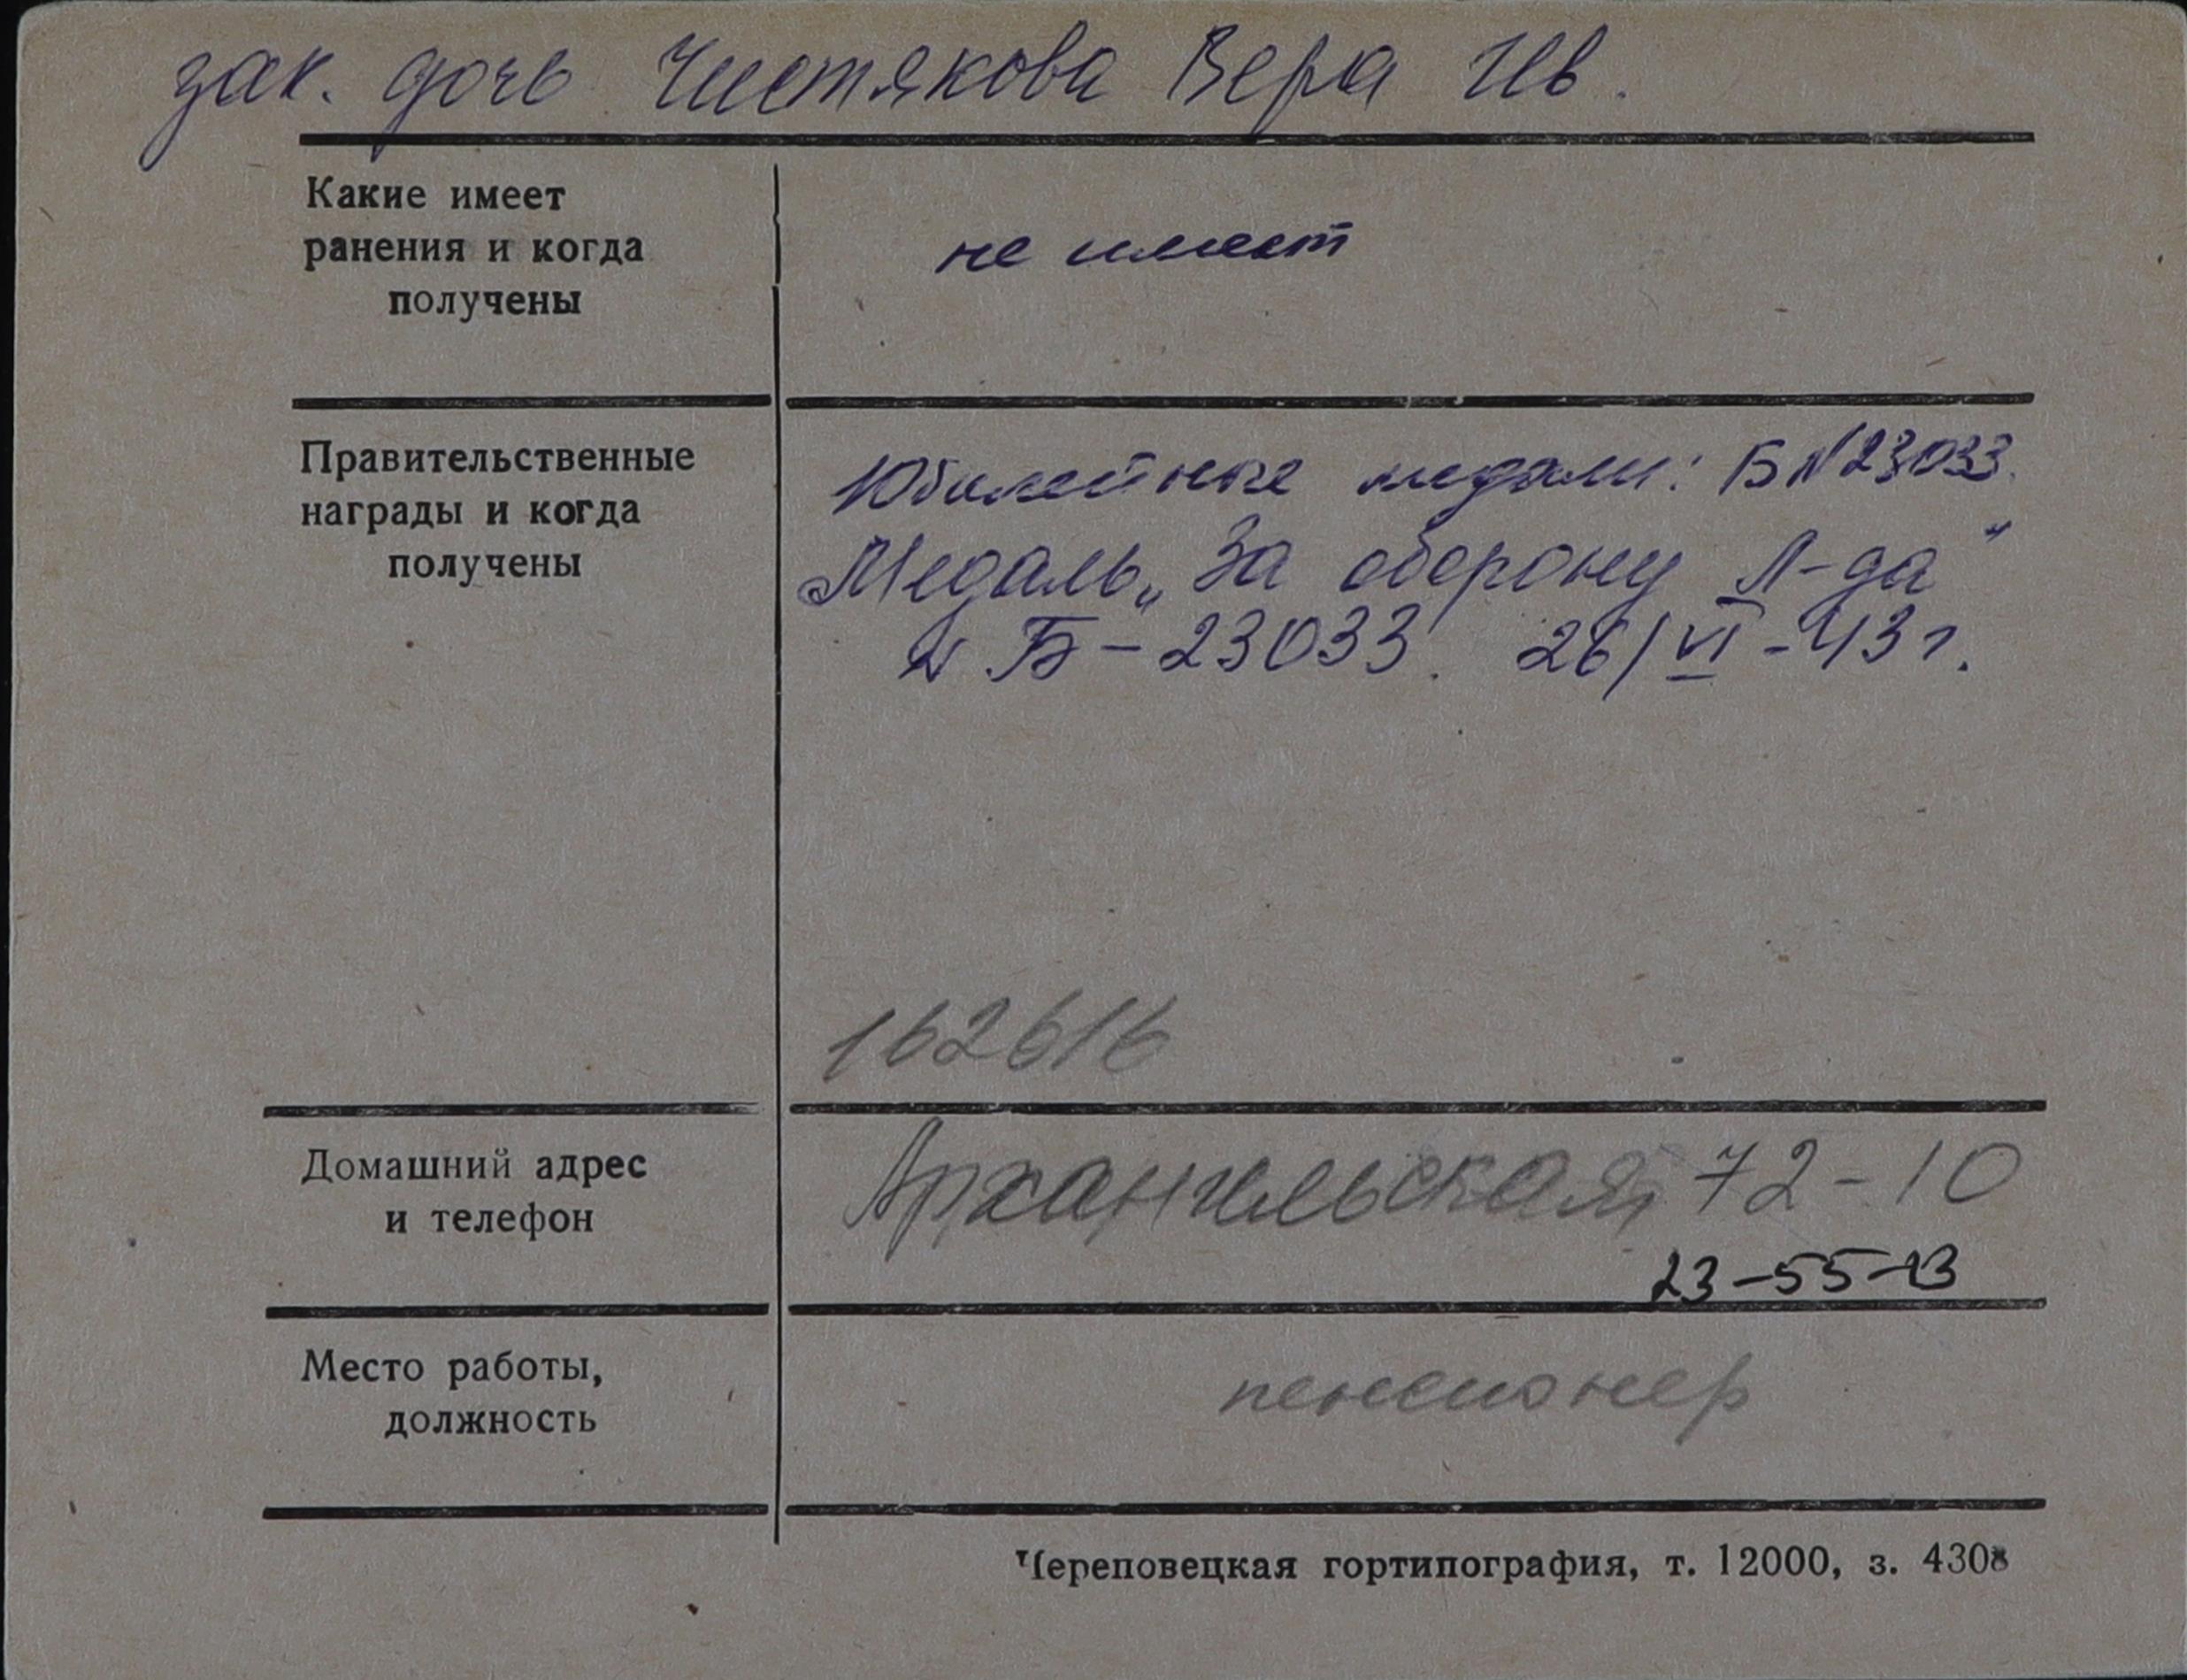 зак. дочь Чистякова Вера Ив.
Какие имеет
ранения и когда
получены
не имеет
Правительственные
награды и когда
получены
Юбилейные медали: Б№23033.
Медаль „За оборону Л-да"
№ Б-23033. 26/VI-43г.
162616
Домашний адрес
и телефон
Архангельская, 72-10
23-55-13
Место работы,
должность
пенсионер
Череповецкая гортипография, т. 12000, з. 4308